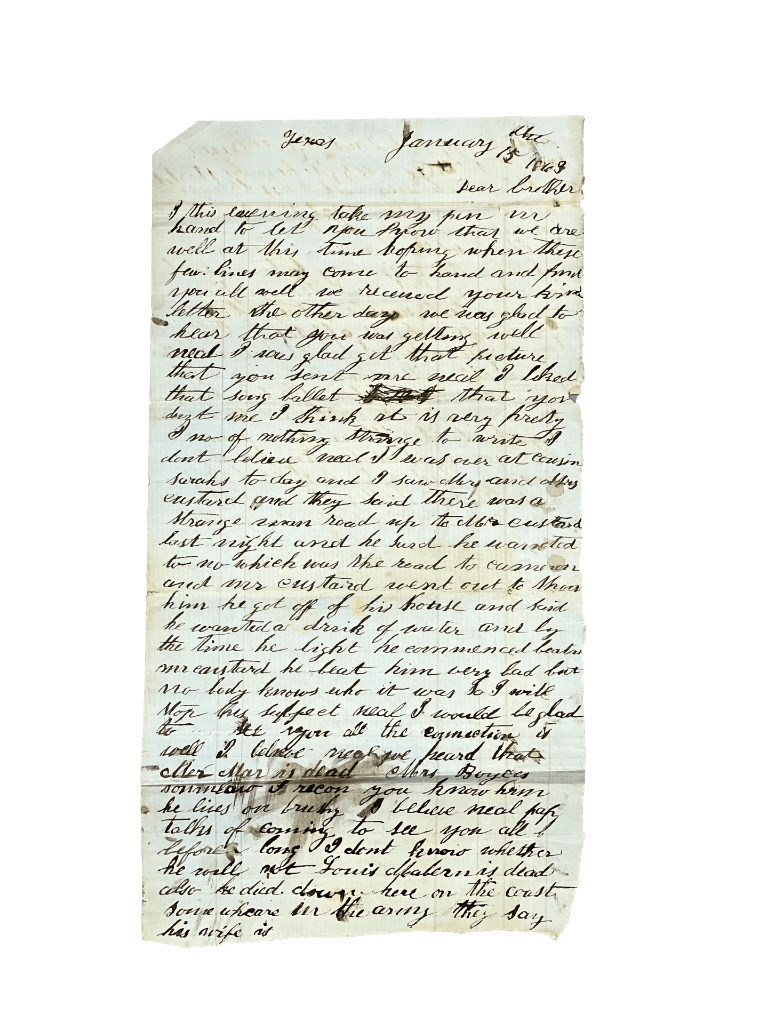 Texas January the
15 1863
Dear brother
I this evening take my pen in
hand to let you know that we are
well at this time hoping when these
few lines may come to hand and find
you all well we received your kind
letter the other day we was glad to
hear that you was getting well
neal I was glad got that picture
that you sent me neal I liked
that song ballet that you
sent me I think it is very pretty
I no of nothing strange to write I
dont believe neal I was over at cousin
sarahs to day and I saw Mr and Mrs
custard and they said there was a
strange man road up to Mr custard
last night and he said he wanted
to no which was the road to cameron
and mr custard went out to show
him he got off of his house and said
he wanted a drink of water and by
the time he light he commenced beaten
mr custard he beat him very bad but
no body knows who it was so I will
stop this subject neal I would be glad
to see you all the connection is
well I believe neal we heard that
Mar is dead Mrs Boyces
soninlaw I recon you know him
he lives on brushy I believe neal pap
talks of coming to see you all
before long I dont know whether
he will not Louis is dead
also he died down here on the coast
some wheare in the army they say
his wife is